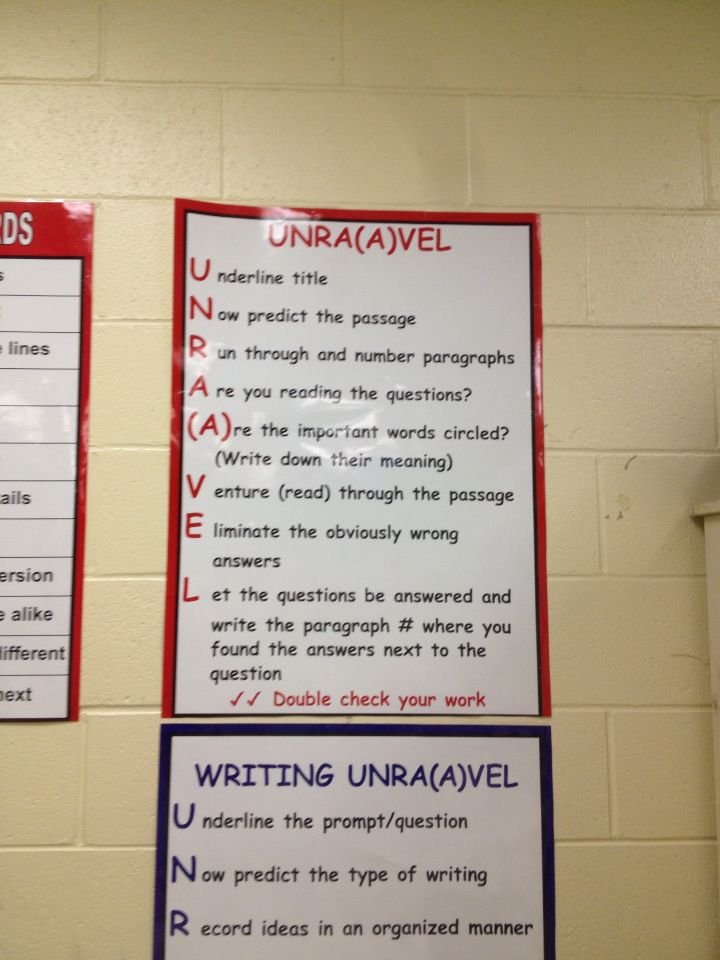 lines
alike
different
UNRA(A)VEL
Underline title
Now predict the passage
Run through and number paragraphs
Are you reading the questions?
(A)re the important words circled?
(Write down their meaning)
Venture (read) through the passage
Eliminate the obviously wrong
answers
Let the questions be answered and
write the paragraph # where you
found the answers next to the
question
✓✓ Double check your work
WRITING UNRA(A)VEL
Underline the prompt/question
Now predict the type of writing
Record ideas in an organized manner